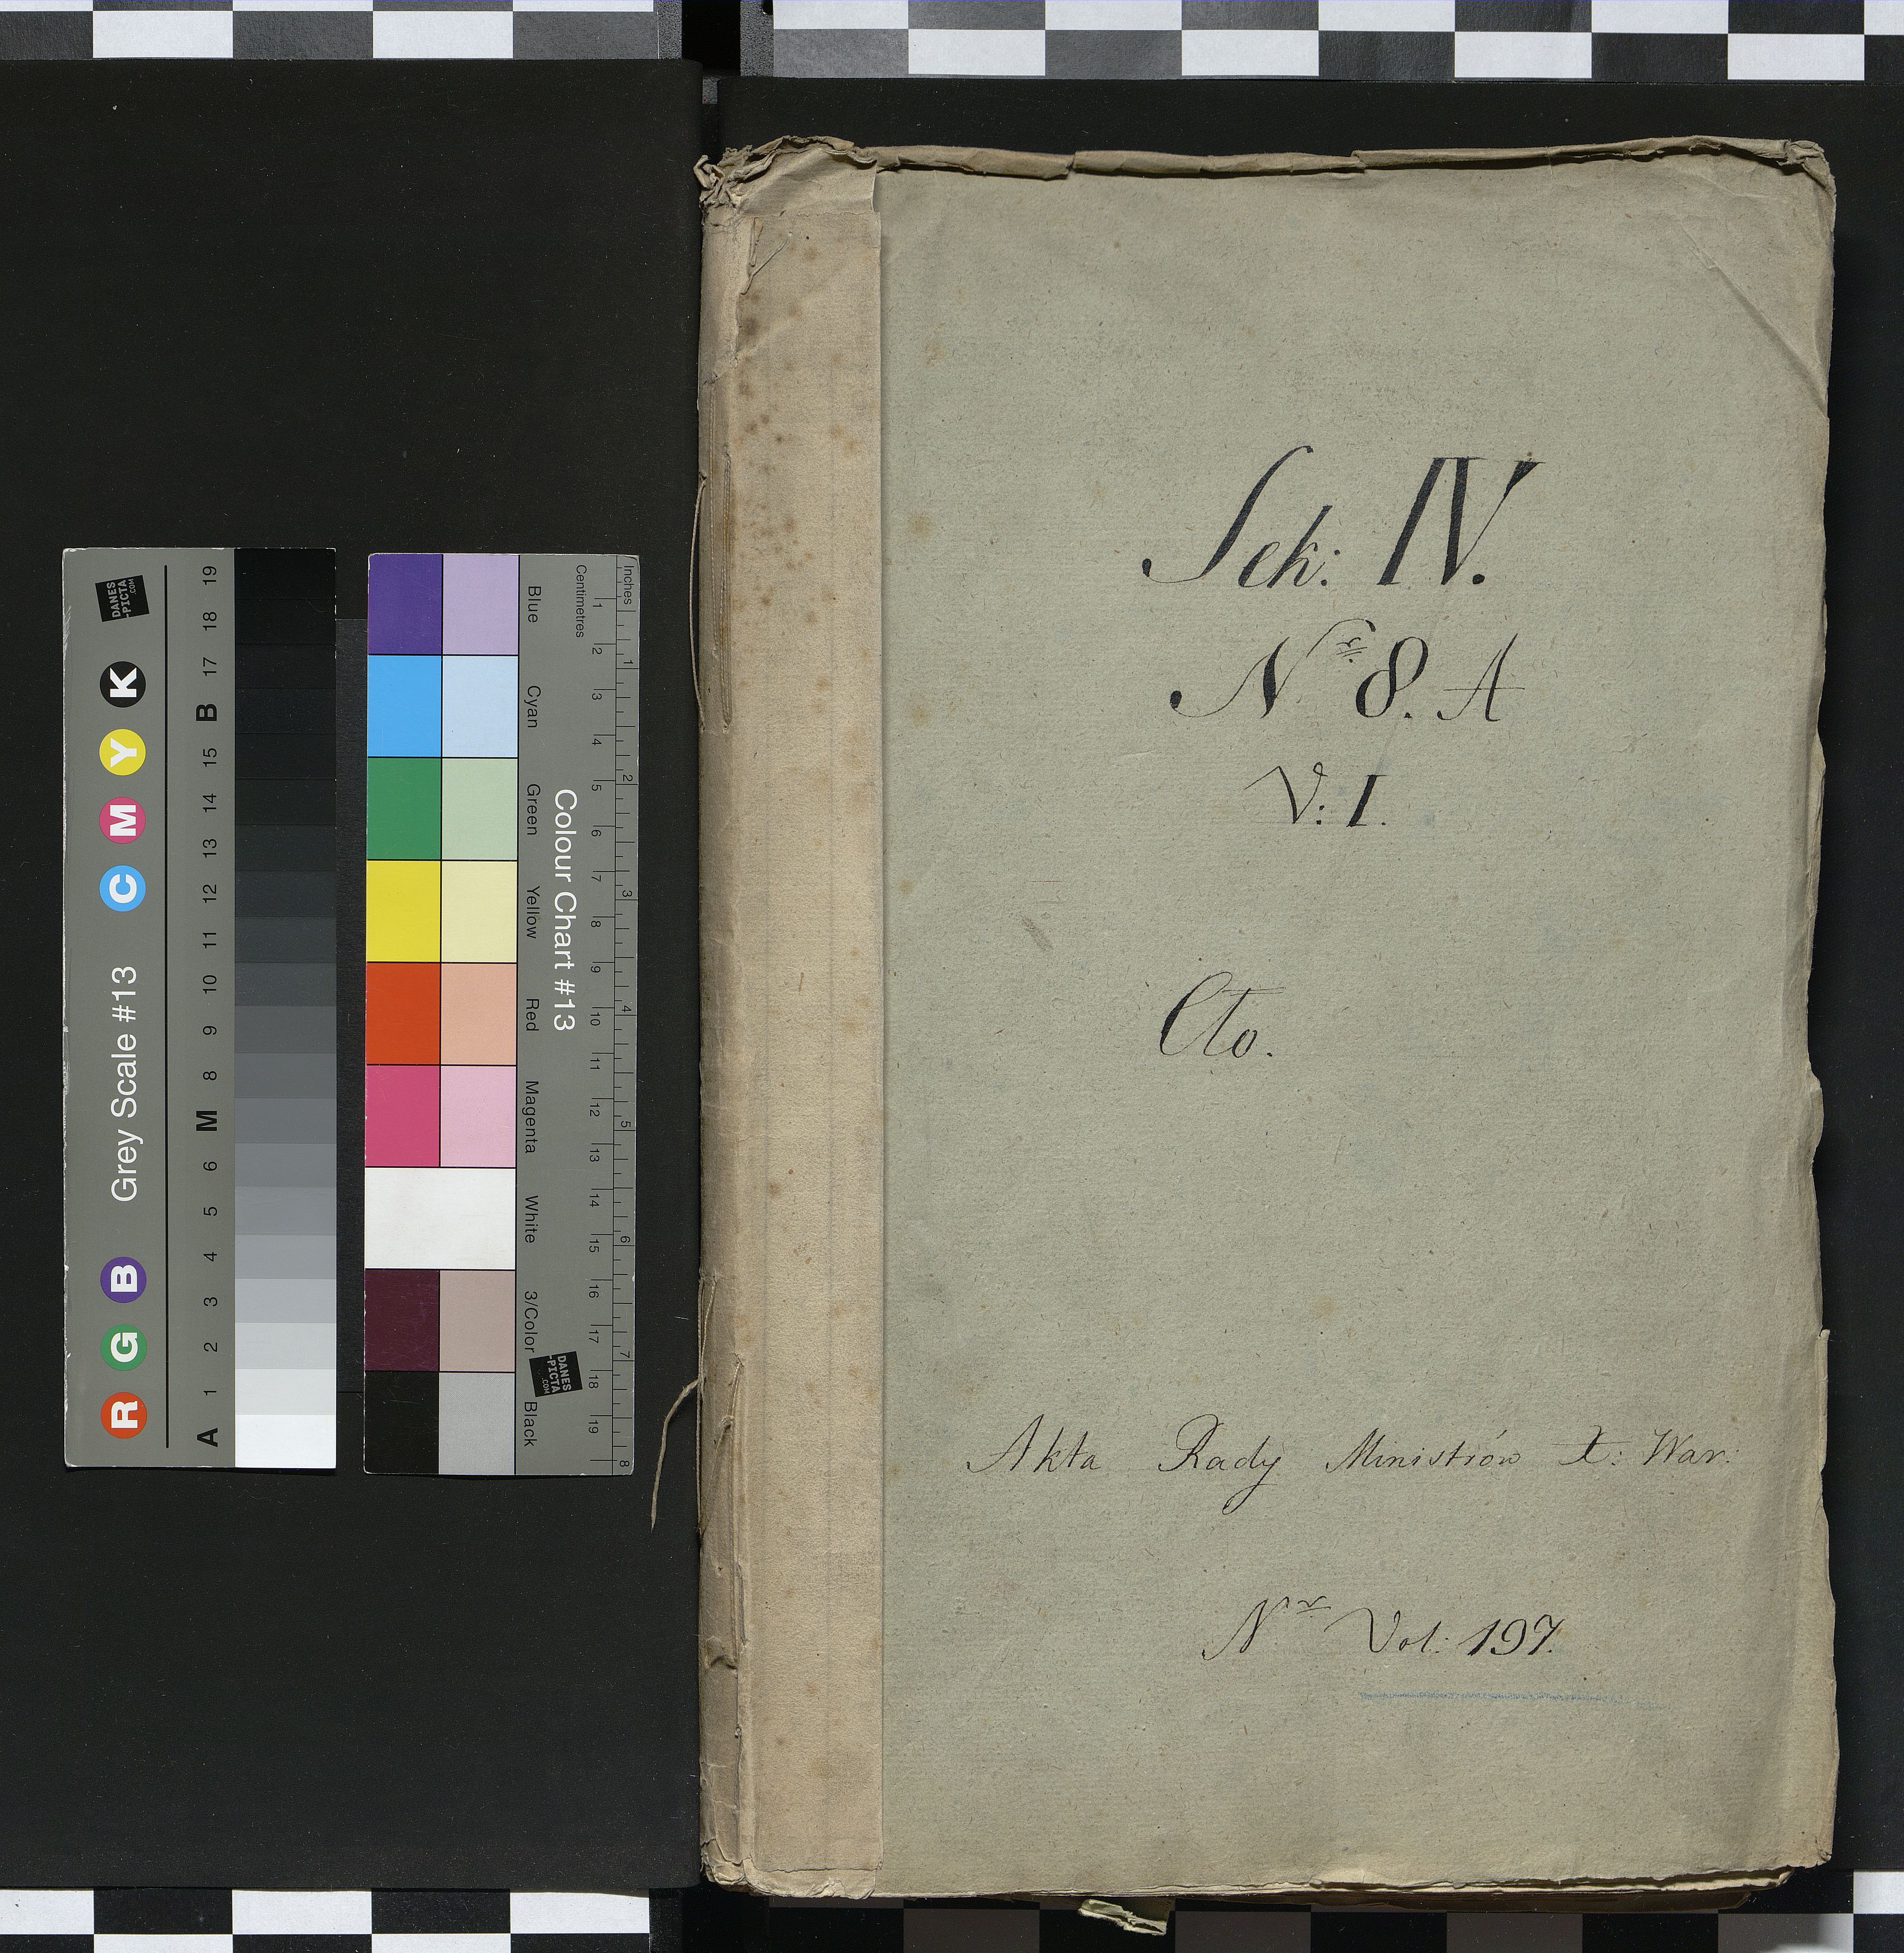 Sek: IV.
Nro 8. A
V: I.
Cto.
Akta Rady Ministrów X: War:
Nr Vol: 197.
Grey Scale #13
R G B C M Y K
A 1 2 3 4 5 6 M 8 9 10 11 12 13 14 15 B 17 18 19
DANES
-PICTA
.COM
Colour Chart #13
Blue Cyan Green Yellow Red Magenta White 3/Color Black
Centimetres 1 2 3 4 5 6 7 8 9 10 11 12 13 14 15 16 17 18 19
Inches 1 2 3 4 5 6 7 8
DANES
-PICTA
.COM